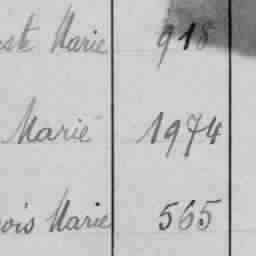 Marie 918
Marie 1974
Marie 565